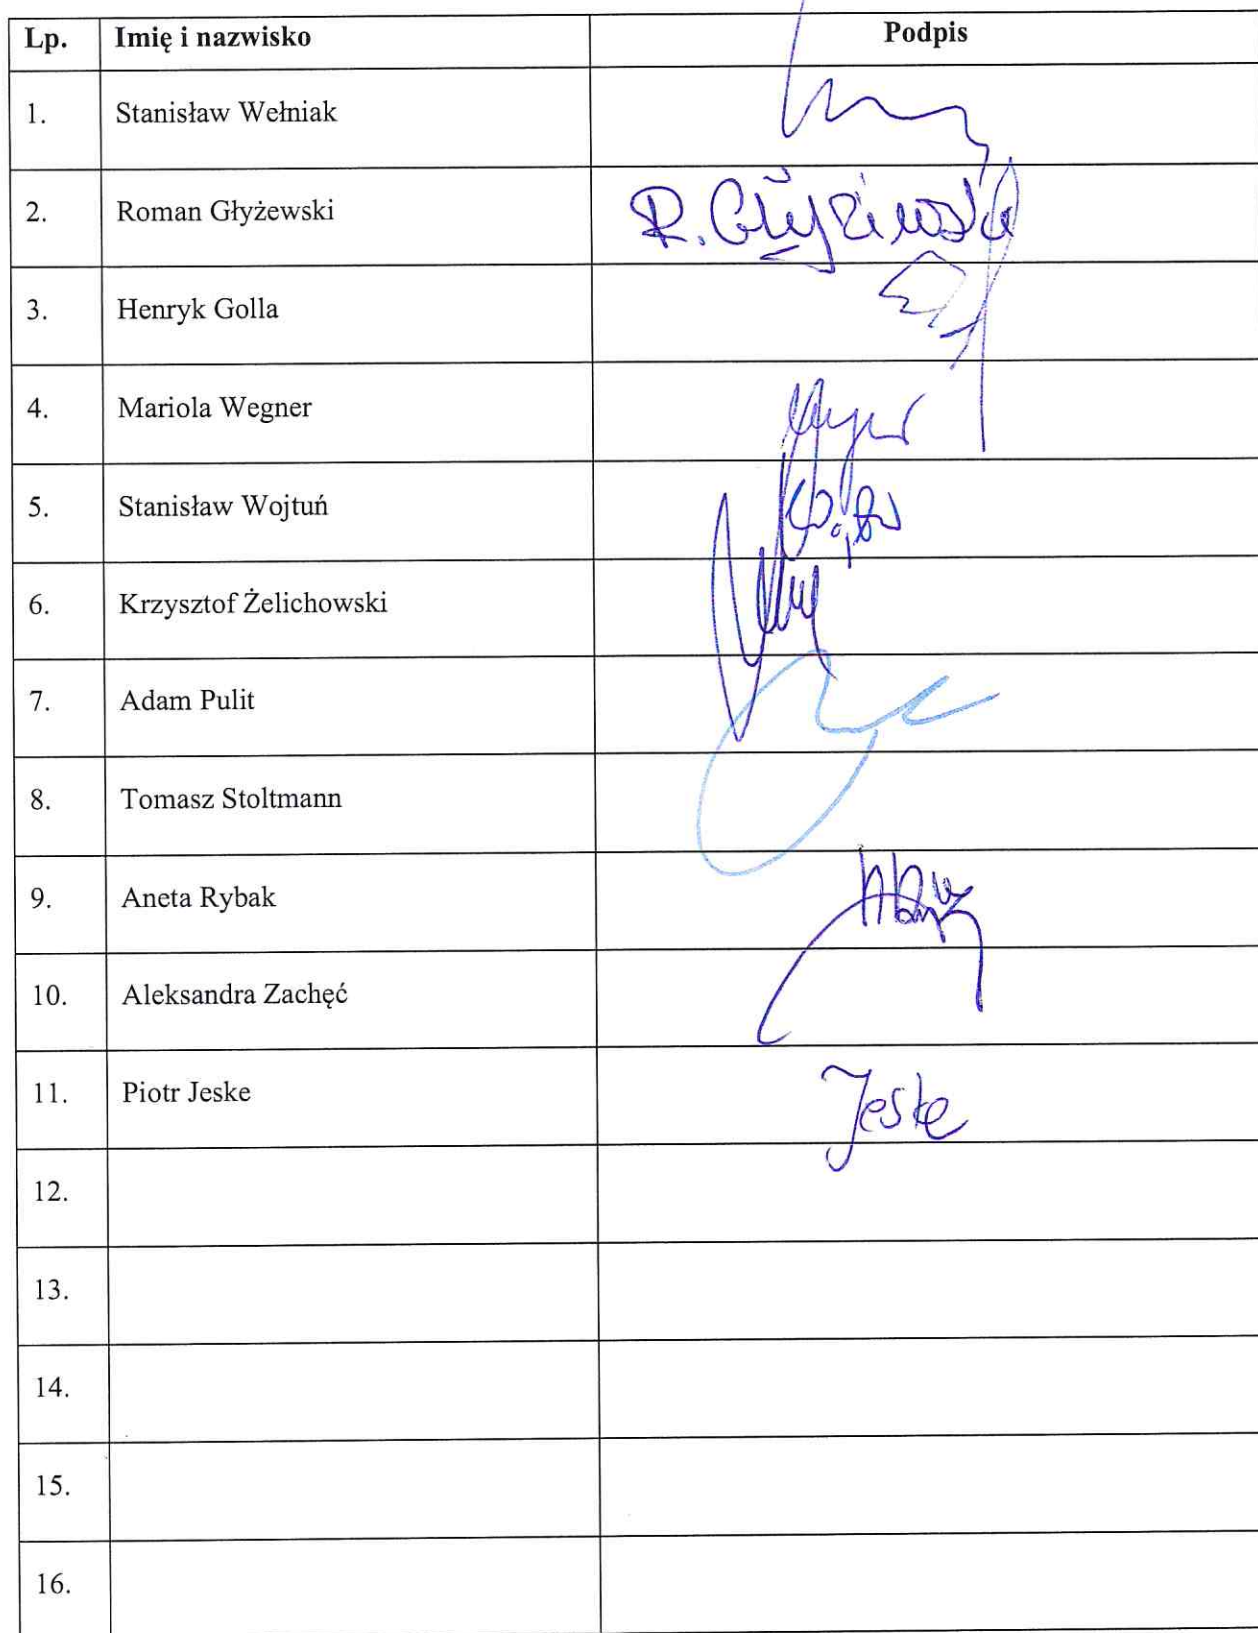 Lp. Imię i nazwisko Podpis
1. Stanisław Wełniak
2. Roman Głyżewski R. Głyżewski
3. Henryk Golla
4. Mariola Wegner
5. Stanisław Wojtuń
6. Krzysztof Żelichowski
7. Adam Pulit
8. Tomasz Stoltmann
9. Aneta Rybak
10. Aleksandra Zachęć
11. Piotr Jeske Jeske
12.
13.
14.
15.
16.